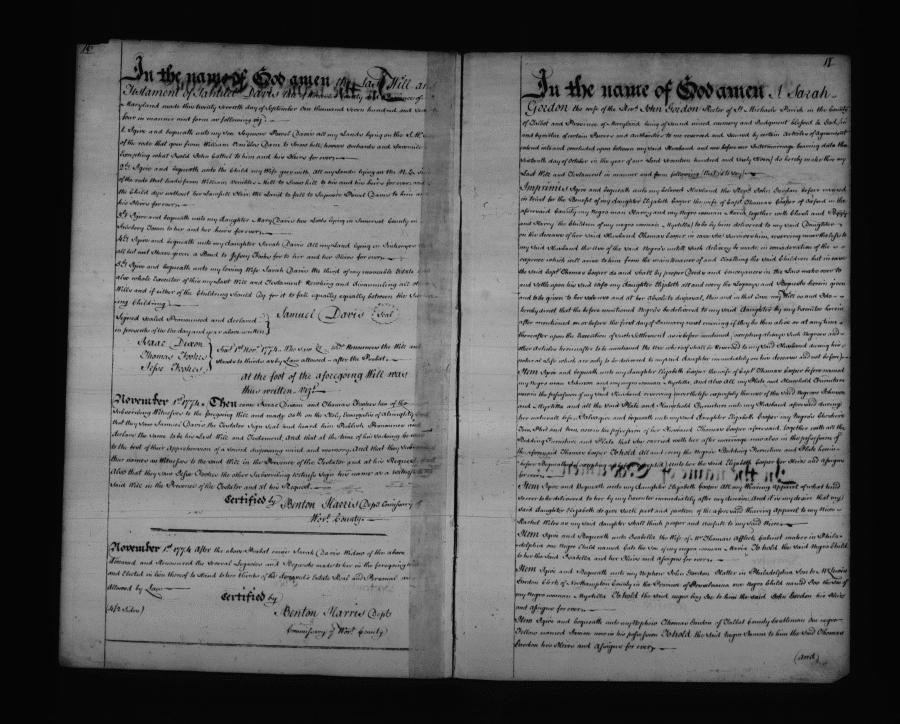 In the name of God amen the Last Will and
Testament of Samuel Davis of County of
Maryland made this twenty seventh day of September one thousand Seven hundred and
four in manner and form as following viz
1. I give and bequeath unto my Son Seymore Powel Davis all my Lands lying on the
of the rode that goes from William to Snow hill, houses orchards and
Excepting what to him and his Heirs for ever
2dly I give and bequeath unto the Child my Wife goes with All my Lands lying on the
of the rode that leads from William to Snow hill to his and his heirs for ever, and
the Child dyes without her Lawfull Heirs the Land to fall to Seymore Powel Davis to him and
his Heirs for ever
3dly I give and bequeath unto my daughter Mary Davis two Lotts lying in Somerset County in
Town to her and her heirs for ever
4thly I give and bequeath unto my daughter Sarah Davis All my land lying in
all but what I have given a Bond to for to her and her Heirs for ever
5thly I give and bequeath unto my loving Wife Sarah Davis the third of my moveable Estate
also whole Executor of this my Last Will and Testament Revoking and disannulling all
Wills and if either of the Children should Dye for it to fall equally equally between the
ing Children
Signed sealed Pronounced and declared
in presents of the day and year above written
Samuel Davis Seal
Isaac Dixon
Thomas Fookes
Jesse Fookes
1st Novr 1774. the Renounces the Will and
Stands to thirds as by Law allowed - after the Probat.
at the foot of the aforegoing Will was
thus written Vizt
November 1st 1774. Then came Isaac Dixon and Thomas Fookes two of the
Subscribing Witnesses to the foregoing Will and made Oath on the Holy Evangelies of Almighty God
that they saw Samuel Davis the Testator Sign Seal and heard him Publish Pronounce and
declare the Same to be his Last Will and Testament. And that at the time of his so doing he was
to the best of their Apprehension of a sound disposing mind and memory. And that they Subscribed
their names as Witnesses to the said Will in the Presence of the Testator and at his Request
Also that they saw Jesse Fookes the other Subscribing Witness Sign his name as a Witness
Said Will in the Presence of the Testator and at his Request
Certified by Benton Harris Depy Comissary
Worr County
November 1st 1774 After the above Probat came Sarah Davis Widow of the above
and Renounced the Several Legacies and Bequests made to her in the foregoing
and Elected in lieu thereof to Stand to her thirds of the deceased's Estate Real and Personal as
allowed by Law
Certified by
Benton Harris Depy
Commissary of Worr County
17
In the name of God amen I Sarah
Gordon the wife of the Revd John Gordon Rector of St Michaels Parish in the County
of Talbot and Province of Maryland being of sound mind memory and Judgment blessed be God for
and by virtue of certain Powers and Authorities to me reserved and Secured by certain Articles of Agreement
entered into and concluded upon between my said Husband and me before our Intermarriage bearing date the
Sixteenth day of October in the year of our Lord Seventeen hundred and Sixty do hereby make this my
Last Will and Testament in manner and form following (that is to say)
Imprimis I give and bequeath unto my beloved Husband the Revd John Gordon before named
in trust for the Benefit of my daughter Elizabeth Cooper the wife of Capt Thomas Cooper of Oxford in the
aforesaid County my Negro man Harry and my Negro woman
Harry the Children of my Negro woman Myrtilla to be by him delivered to my said Daughter
on the decease of her said Husband Thomas Cooper in case She Survives him, reserving nevertheless to
my said Husband the Use of the said Negro's untill Such delivery be made in consideration of the
expence which will arise to him from the maintenance of and Cloathing the said Children but in case
the said Capt Thomas Cooper do and shall by proper Deeds and Conveyances in the Law make over to
and settle upon his said Wife my daughter Elizabeth all and every the Legacys and Bequests herein given
and to be given to her Sole use and at her absolute disposal, then and in that case my Will is and I do
hereby direct that the before mentioned Negros be delivered to my said Daughter by my Executor herein
after mentioned on or before the first day of January next ensuing if they be then alive or at any time
thereafter upon the Execution of such Settlement as is before mentioned, excepting always Such Negroes and
other Articles hereinafter to be mentioned the Use whereof shall be reserved to my said Husband during his
natural Life which are only to be delivered to my said daughter immediately on his decease and not before
Item I give and bequeath unto my daughter Elizabeth Cooper the wife of Capt Thomas Cooper before named
my Negro man and my Negro woman Myrtilla And Also All my Plate and Household Furniture
now in the possession of my said Husband reserving nevertheless expressly the use of the said Negroes
and Myrtilla and all the said Plate and Household Furniture unto my Husband aforesaid during
his natural life. I also give and bequeath unto my said daughter Elizabeth Cooper my Negroes
now in the possession of her Husband Thomas Cooper aforesaid, together with all the
Bedding Furniture and Plate that She carried with her after marriage now also in the possession of
the aforesaid Thomas Cooper To hold all and every the Negros Bedding Furniture and Plate herein
before Bequeathed unto her the said Elizabeth Cooper her Heirs and assigns
for ever
Item I give and bequeath unto my daughter Elizabeth Cooper All my Wearing Apparel of what kind
soever to be delivered to her by my Executor immediately after my decease, And it is my desire that my
said daughter Elizabeth do give such part and portion of the aforesaid Wearing Apparel to my Niece
Rachel Miles as my said daughter shall think proper and usefull to my said Niece
Item I give and Bequeath unto Isabella the Wife of Mr Thomas Affleck Cabinet maker in Phila-
delphia one Negro Child named Cate the Dau of my Negro woman To hold the said Negro Child
to her the said Isabella and her Heirs and Assigns for ever
Item I give and Bequeath unto my Nephew John Gordon Hatter in Philadelphia Son to Mr Lewis
Gordon Clerk of Northampton County in the Province of Pensylvania one Negro Child named the Son of
my Negro woman Myrtilla To hold the said Negro boy to him the said John Gordon his Heirs
and Assigns for ever
Item I give and bequeath unto my Nephew Thomas Gordon of Talbot County Gentleman one Negro
Fellow named now in his possession To hold the said Negro to him the said Thomas
Gordon his Heirs and Assigns for ever
(and)